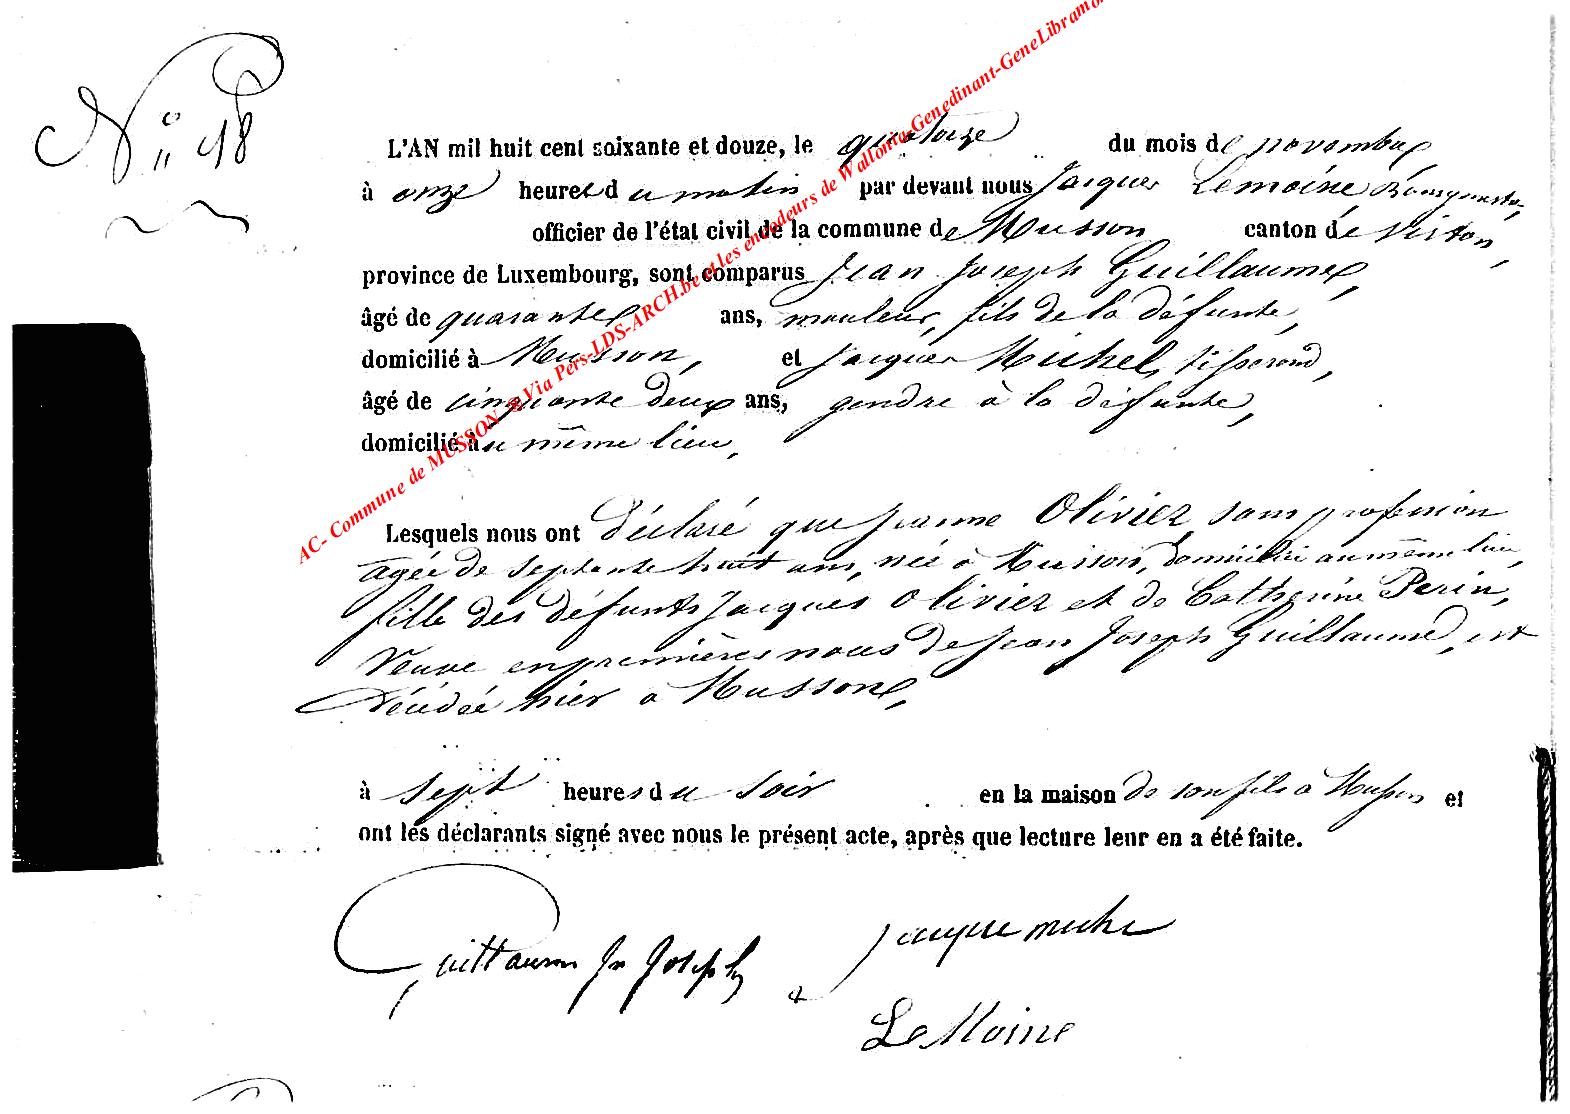 N° 18
L'AN mil huit cent soixante et douze, le quatorze du mois de novembre,
à onze heures du matin par devant nous Jacques Lemoine Bourgmestre,
officier de l'état civil de la commune de Musson canton de Virton,
province de Luxembourg, sont comparus Jean Joseph Guillaume,
âgé de quarante ans, mouleur, fils de la défunte,
domicilié à Musson, et Jacques Michel, tisserand,
âgé de cinquante deux ans, gendre à la défunte,
domicilié au même lieu,
Lesquels nous ont déclaré que Jeanne Olivier, sans profession
agée de septante huit ans, née à Musson, domiciliée au même lieu,
fille des défunts Jacques Olivier et de Catherine Perin,
veuve en premières nous de Jean Joseph Guillaume, est
décédée hier à Musson,
à sept heures du soir en la maison de son fils à Musson et
ont les déclarants signé avec nous le présent acte, après que lecture leur en a été faite.
Guillaume Jn Joseph jacque miche
LeMoine
AC- Commune de MUSSON @ Via Pers-LDS-ARCH.be et les encodeurs de Wallonia-Genedinant-GeneLibramo